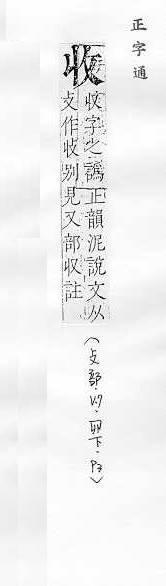 正字通
收
收字之譌正韻泥說文从
攴作收别見又部收註
(攴部.卯下.P2)